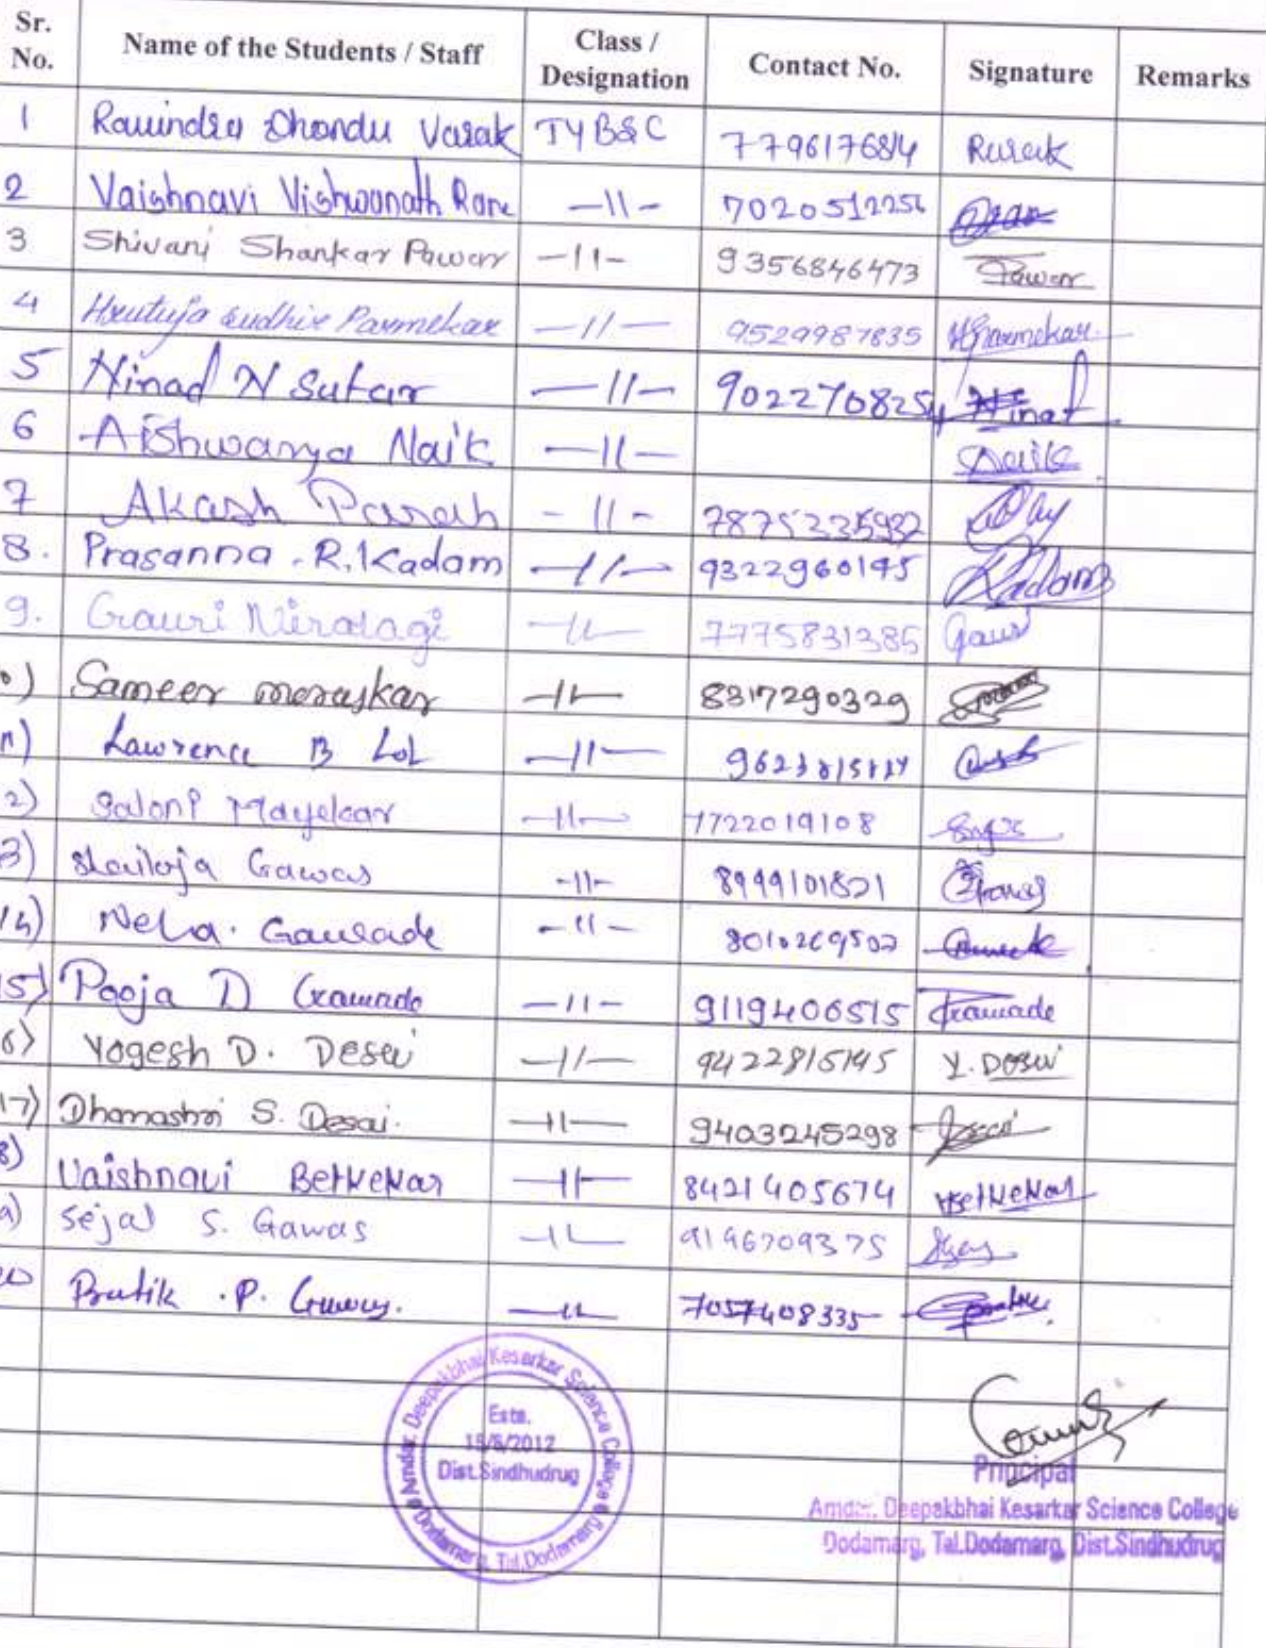 Sr. No. Name of the Students / Staff Class / Designation Contact No. Signature Remarks
1 Ravindra Chandu Varak TYBSC 7796176814
2 Vaishnavi Vishwanath Rane —11— 7020512256
3 Shivani Shankar Pawar —11— 9356846473 Pawar
4 Hrutuja Sudhir Parmekar —11— 9529987835 Parmekar
5 Ninad N Sutar —11— 9022708254
6 Aishwarya Naik —11— Naik
7 Akash Parab —11— 7875235932
8. Prasanna . R. Kadam —11— 9322960195 Kadam
9. Gauri Niralagi —11— 7775831385 Gauri
) Sameer —11— 8317290329
11) Lawrence B Lol —11—
2) Saloni Mayekar —11— 7722019108
3) Shailaja Gawas —11— 8999101821
14) Neha. Gawade —11— 8010269502
15) Pooja D Gawade —11— 9119406515 Gawade
6) Yogesh D. Desai —11— 9422815145 Y. Desai
17) Dhanashri S. Desai. —11— 9403245298
8) Vaishnavi Betkekar —11— 8421405674 Betkekar
9) Sejal S. Gawas —11— 9146709375
20 Pratik . P. —11— 7057408335
Amdar. Deepakbhai Kesarkar Science College Dodamarg, Tal.Dodamarg
Estd.
15/6/2012
Dist.Sindhudrug
Principal
Amdar. Deepakbhai Kesarkar Science College
Dodamarg, Tal.Dodamarg, Dist.Sindhudrug